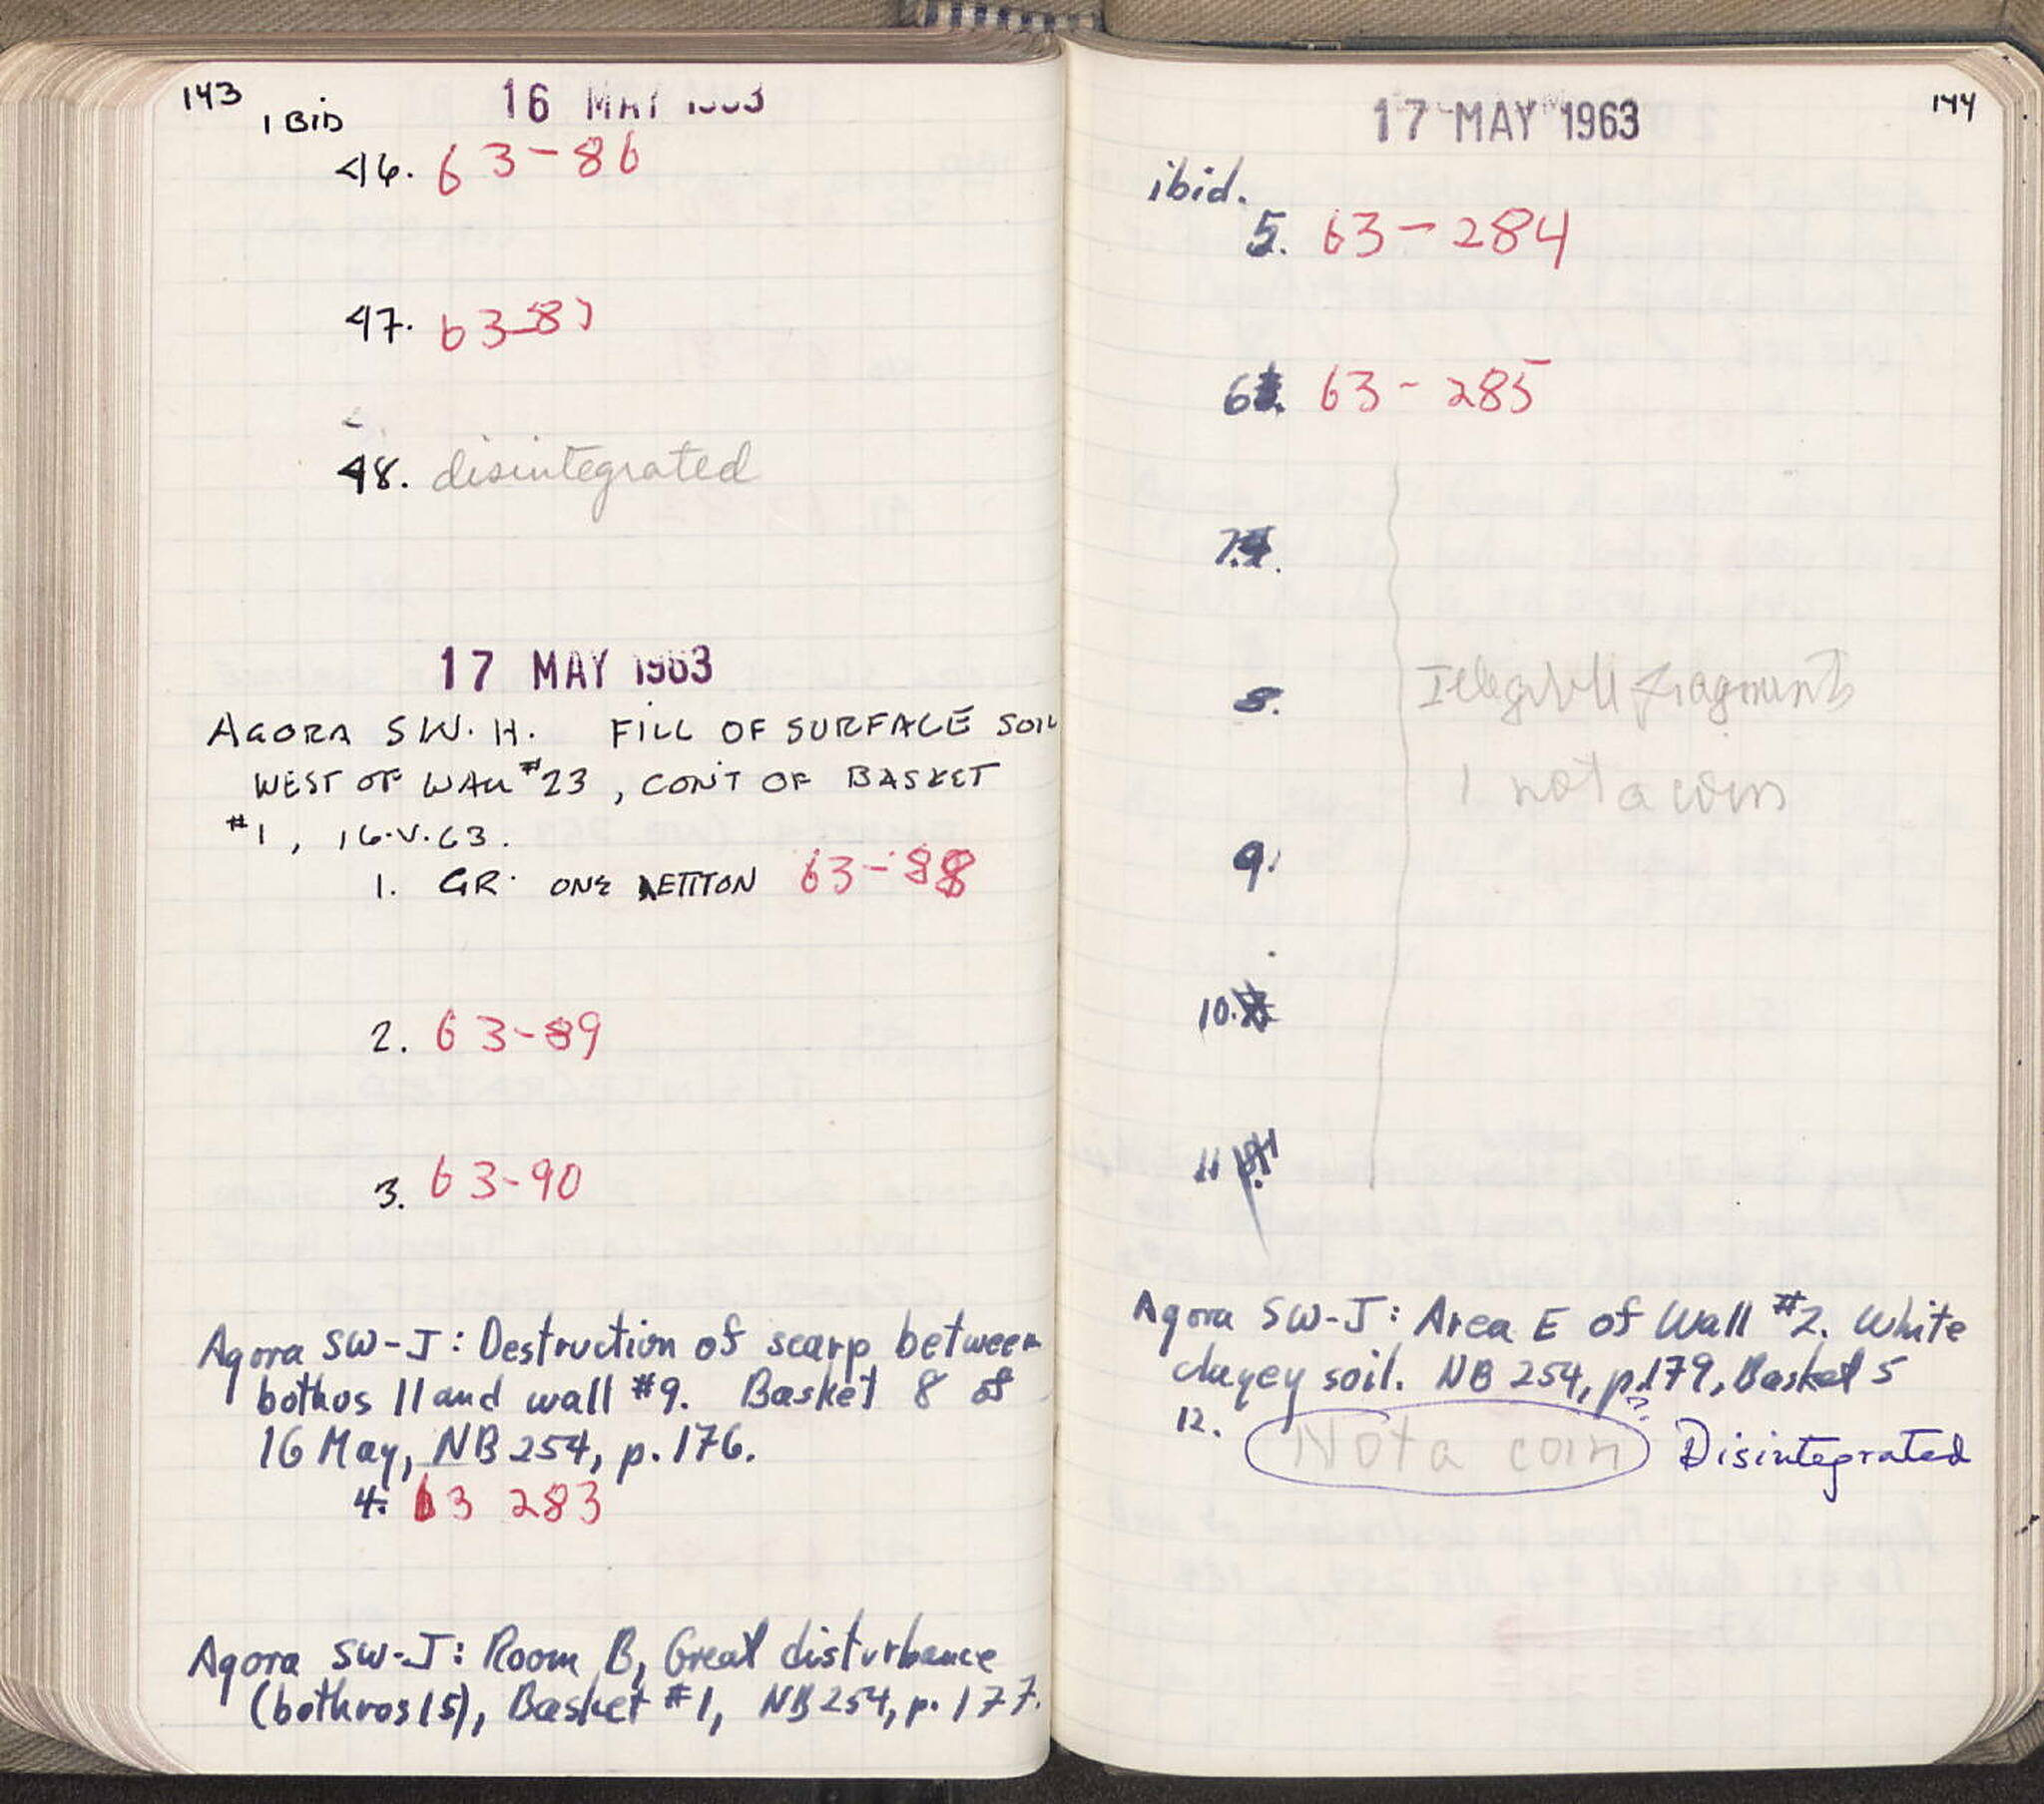 143
16 MAY 1963
IBID
46. 63-86
47. 63-87
48. disintegrated
17 MAY 1963
AGORA SW. H. FILL OF SURFACE SOIL
WEST OF WALL #23, CON'T OF BASKET
#1, 16.V.63.
1. GR. ONE 63-88
2. 63-89
3. 63-90
Agora SW-J: Destruction of scarp between
bothos 11 and wall #9. Basket 8 of
16 May, NB 254, p. 176.
4. 63 283
Agora SW-J: Room B, Great disturbance
(bothros 15), Basket #1, NB 254, p. 177.
17 MAY 1963
144
ibid.
5. 63-284
6. 63-285
7.
8.
Illegible fragments
1 not a coin
9.
10.
11
Agora SW-J: Area E of Wall #2. White
clayey soil. NB 254, p. 179, Basket 5
12. Not a coin ? Disintegrated